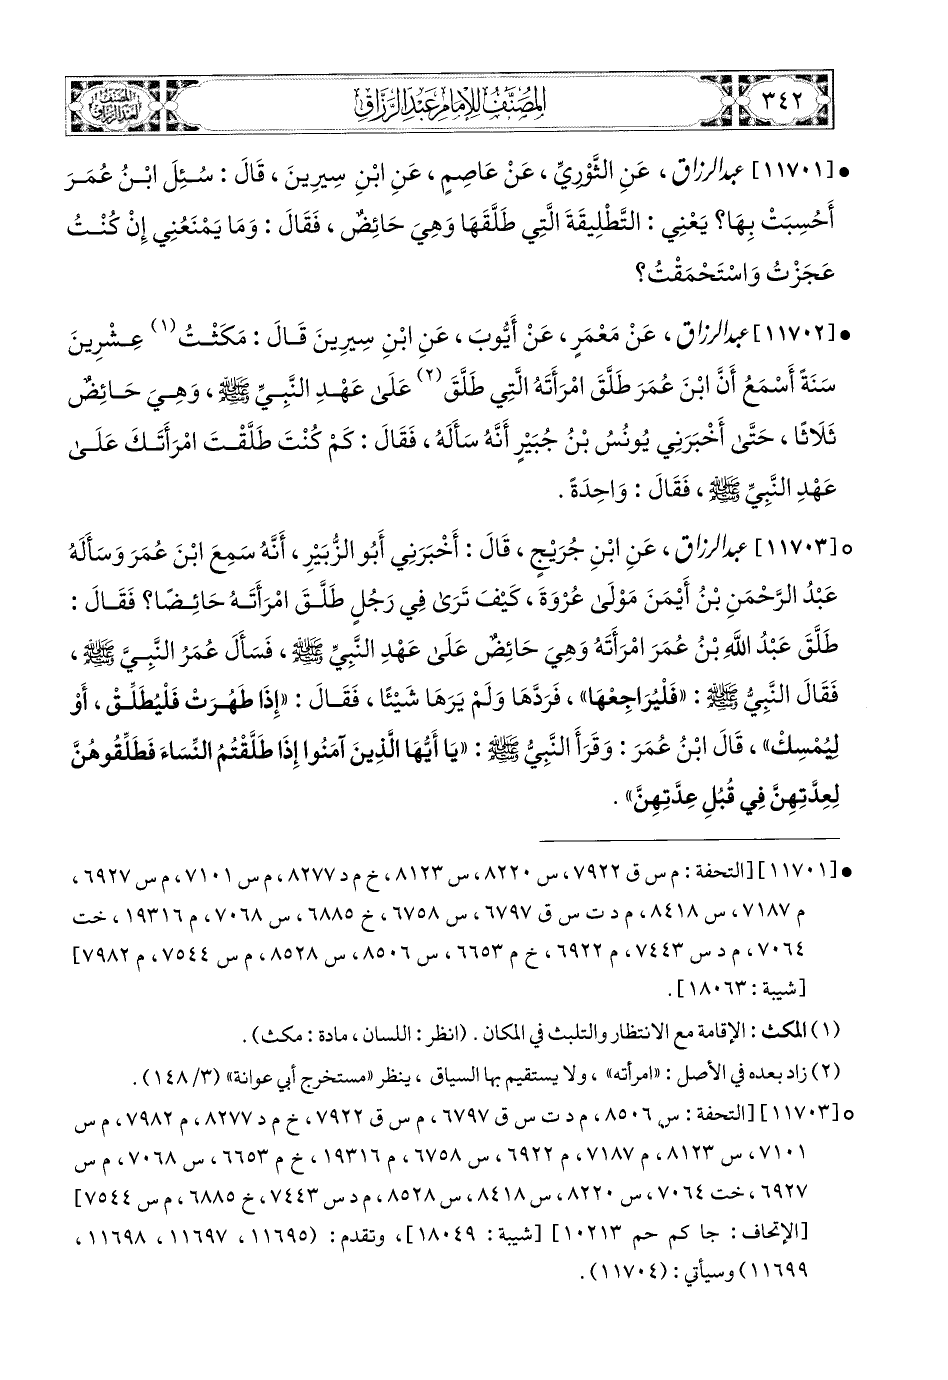 ٣٤٢
المصنف للإمام عبد الرزاق
المصنف
لعبد الرزاق
• [١١٧٠١] عبد الرزاق ، عَنِ الثَّوْرِيِّ ، عَنْ عَاصِمٍ ، عَنِ ابْنِ سِيرِينَ ، قَالَ : سُئِلَ ابْنُ عُمَرَ
أَحُسِبَتْ بِهَا؟ يَعْنِي : التَّطْلِيقَةَ الَّتِي طَلَّقَهَا وَهِيَ حَائِضٌ ، فَقَالَ : وَمَا يَمْنَعُنِي إِنْ كُنْتُ
عَجَزْتُ وَاسْتَحْمَقْتُ؟
• [١١٧٠٢] عبد الرزاق ، عَنْ مَعْمَرٍ ، عَنْ أَيُّوبَ ، عَنِ ابْنِ سِيرِينَ قَالَ : مَكَثْتُ (١) عِشْرِينَ
سَنَةً أَسْمَعُ أَنَّ ابْنَ عُمَرَ طَلَّقَ امْرَأَتَهُ الَّتِي طَلَّقَ (٢) عَلَىٰ عَهْدِ النَّبِيِّ ﷺ ، وَهِيَ حَائِضٌ
ثَلَاثًا ، حَتَّىٰ أَخْبَرَنِي يُونُسُ بْنُ جُبَيْرٍ أَنَّهُ سَأَلَهُ ، فَقَالَ : كَمْ كُنْتَ طَلَّقْتَ امْرَأَتَكَ عَلَىٰ
عَهْدِ النَّبِيِّ ﷺ ، فَقَالَ : وَاحِدَةً .
○ [١١٧٠٣] عبد الرزاق ، عَنِ ابْنِ جُرَيْجٍ ، قَالَ : أَخْبَرَنِي أَبُو الزُّبَيْرِ ، أَنَّهُ سَمِعَ ابْنَ عُمَرَ وَسَأَلَهُ
عَبْدُ الرَّحْمَنِ بْنُ أَيْمَنَ مَوْلَىٰ عُرْوَةَ ، كَيْفَ تَرَىٰ فِي رَجُلٍ طَلَّقَ امْرَأَتَهُ حَائِضًا؟ فَقَالَ :
طَلَّقَ عَبْدُ اللَّهِ بْنُ عُمَرَ امْرَأَتَهُ وَهِيَ حَائِضٌ عَلَىٰ عَهْدِ النَّبِيِّ ﷺ ، فَسَأَلَ عُمَرُ النَّبِيَّ ﷺ ،
فَقَالَ النَّبِيُّ ﷺ : «فَلْيُرَاجِعْهَا» ، فَرَدَّهَا وَلَمْ يَرَهَا شَيْئًا ، فَقَالَ : «إِذَا طَهُرَتْ فَلْيُطَلِّقْ ، أَوْ
لِيُمْسِكْ» ، قَالَ ابْنُ عُمَرَ : وَقَرَأَ النَّبِيُّ ﷺ : «يَا أَيُّهَا الَّذِينَ آمَنُوا إِذَا طَلَّقْتُمُ النِّسَاءَ فَطَلِّقُوهُنَّ
لِعِدَّتِهِنَّ فِي قُبُلِ عِدَّتِهِنَّ» .
• [١١٧٠١] [التحفة : م س ق ٧٩٢٢ ، س ٨٢٢٠ ، س ٨١٢٣ ، خ م د ٨٢٧٧ ، م س ٧١٠١ ، م س ٦٩٢٧ ،
م ٧١٨٧ ، س ٨٤١٨ ، م د ت س ق ٦٧٩٧ ، س ٦٧٥٨ ، خ ٦٨٨٥ ، س ٧٠٦٨ ، م ١٩٣١٦ ، خت
٧٠٦٤ ، م د س ٧٤٤٣ ، م ٦٩٢٢ ، خ م ٦٦٥٣ ، س ٨٥٠٦ ، س ٨٥٢٨ ، م س ٧٥٤٤ ، م ٧٩٨٢]
[شيبة : ١٨٠٦٣] .
(١) المكث : الإقامة مع الانتظار والتلبث في المكان . (انظر : اللسان ، مادة : مكث) .
(٢) زاد بعده في الأصل : «امرأته» ، ولا يستقيم بها السياق ، ينظر «مستخرج أبي عوانة» (٣/ ١٤٨) .
○ [١١٧٠٣] [التحفة : س ٨٥٠٦ ، م د ت س ق ٦٧٩٧ ، م س ق ٧٩٢٢ ، خ م د ٨٢٧٧ ، م ٧٩٨٢ ، م س
٧١٠١ ، س ٨١٢٣ ، م ٧١٨٧ ، م ٦٩٢٢ ، س ٦٧٥٨ ، م ١٩٣١٦ ، خ م ٦٦٥٣ ، س ٧٠٦٨ ، م س
٦٩٢٧ ، خت ٧٠٦٤ ، س ٨٢٢٠ ، س ٨٤١٨ ، س ٨٥٢٨ ، م د س ٧٤٤٣ ، خ ٦٨٨٥ ، م س ٧٥٤٤]
[الإتحاف : جا كم حم ١٠٢١٣] [شيبة : ١٨٠٤٩] ، وتقدم : (١١٦٩٥ ، ١١٦٩٧ ، ١١٦٩٨ ،
١١٦٩٩) وسيأتي : (١١٧٠٤) .